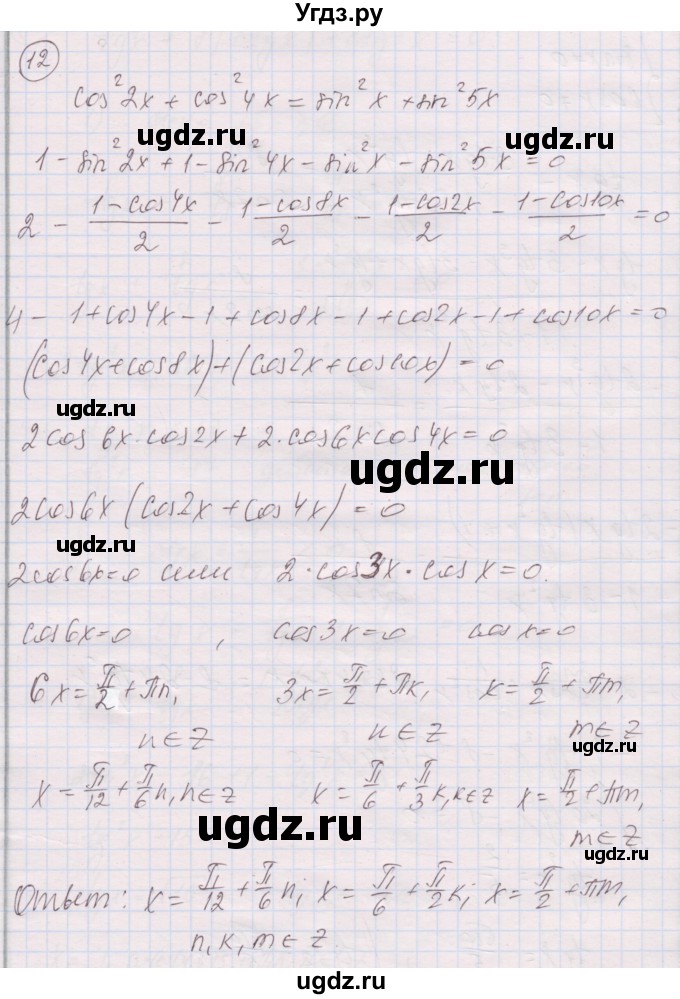 Угдз.ру
12
cos²2x + cos²4x = sin²x + sin²5x
ugdz.ru ugdz.ru
1 - sin²2x + 1 - sin²4x - sin²x - sin²5x = 0
2 - (1-cos4x)/2 - (1-cos8x)/2 - (1-cos2x)/2 - (1-cos10x)/2 = 0
ugdz.ru
4 - 1 + cos4x - 1 + cos8x - 1 + cos2x - 1 + cos10x = 0
(cos4x + cos8x) + (cos2x + cos10x) = 0
ugdz.ru
2cos6x·cos2x + 2·cos6x cos4x = 0
ugdz.ru
2cos6x (cos2x + cos4x) = 0
ugdz.ru
2cos6x = 0 или 2·cos3x·cosx = 0.
cos6x = 0 , cos3x = 0 cosx = 0
6x = π/2 + πn, 3x = π/2 + πk, x = π/2 + πm,
n ∈ Z n ∈ Z m ∈ Z
ugdz.ru
x = π/12 + π/6 n, n ∈ Z x = π/6 + π/3 k, k ∈ Z x = π/2 + πm,
ugdz.ru
m ∈ Z
ugdz.ru
Ответ: x = π/12 + π/6 n; x = π/6 + π/2 k; x = π/2 + πm,
n, k, m ∈ Z.
ugdz.ru
ugdz.ru